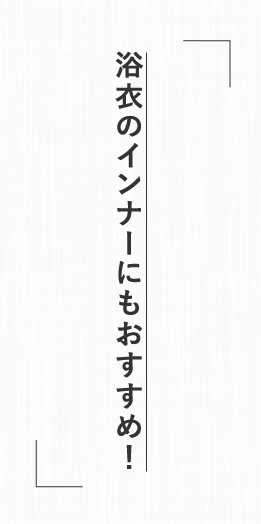 浴衣のインナーにもおすすめ！